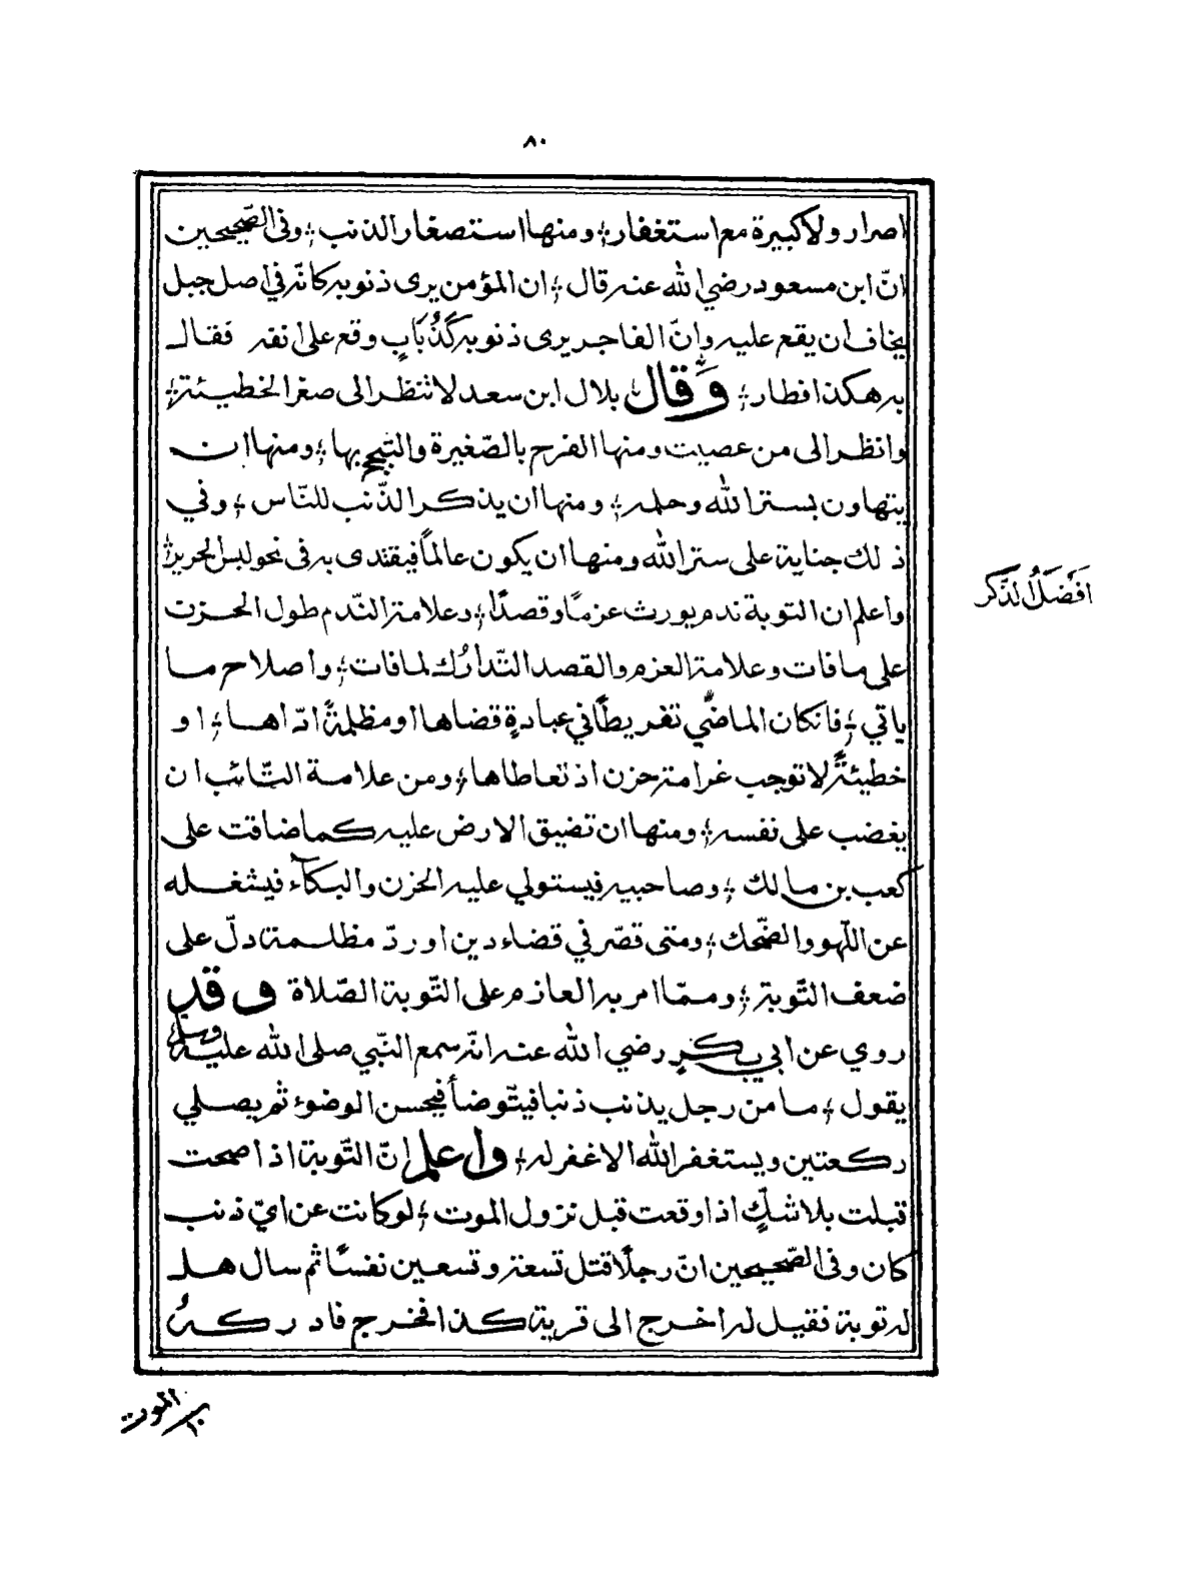 ٨٠
اصرار ولا كبيرة مع استغفار؛ ومنها استصغار الذنب؛ وفي الصّحيحين
انّ ابن مسعود رضي الله عنه قال؛ ان المؤمن يرى ذنوبه كانّه في اصل جبل
يخاف ان يقع عليه وانّ الفاجر يرى ذنوبه كَذُبَابٍ وقع على انفه فقال
به هكذا فطار؛ وَقال بلال ابن سعد لا تنظر الى صغر الخطيئة؛
وانظر الى من عصيت ومنها الفرح بالصّغيرة والتبجح بها؛ ومنها ان
يتهاون بستر الله وحلمه؛ ومنها ان يذكر الذّنب للنّاس؛ وفي
ذلك جناية على ستر الله ومنها ان يكون عالماً فيقتدى به في نحو لبس الحرير؛
واعلم ان التوبة ندم يورث عزمًا وقصدًا؛ وعلامة النّدم طول الحزن
على ما فات وعلامة العزم والقصد التّدارُك لما فات؛ واصلاح ما
ياتي؛ فانكان الماضي تفريطًا في عبادةٍ قضاها او مظلمةً ادّاها؛ او
خطيئةً لا توجب غرامة حزن اذ تعاطاها؛ ومن علامة التّائب ان
يغضب على نفسه؛ ومنها ان تضيق الارض عليه كما ضاقت على
كعب بن مالك؛ وصاحبيه فيستولي عليه الحزن والبكآء فيشغله
عن اللّهو والضّحك؛ ومتى قصّر في قضاء دين او ردّ مظلمة دلّ على
ضعف التّوبة؛ وممّا امر به العازم على التّوبة الصّلاة وقد
روي عن ابي بكرٍ رضي الله عنه انّه سمع النّبي صلى الله عليه وسلم
يقول؛ ما من رجل يذنب ذنبا فيتّوضأ فيحسن الوضوء ثم يصلي
ركعتين ويستغفر الله الا غفر له؛ واعلم انّ التّوبة اذا صحت
قبلت بلا شكٍّ اذا وقعت قبل نزول الموت؛ لو كانت عن ايّ ذنب
كان وفي الصّحيحين انّ رجلًا قتل تسعة وتسعين نفسًا ثم سال هل
له توبة فقيل له اخرج الى قرية كذا فخرج فادركهُ
افضَلُ الذّكر
الموت